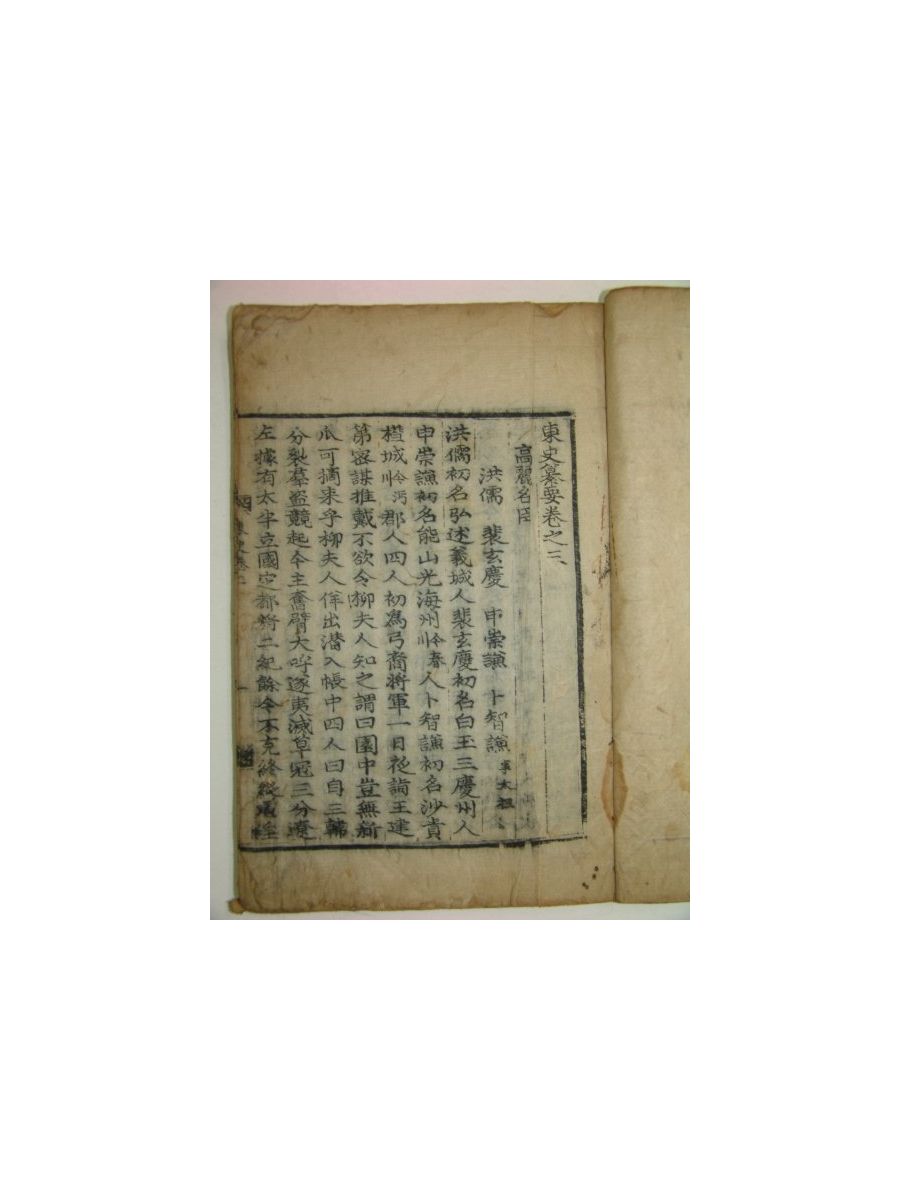 東史纂要卷之三
高麗名臣
洪儒 裴玄慶 申崇謙 卜智謙 事太祖
洪儒初名弘述義城人裴玄慶初名白玉三慶州人
申崇謙初名能山光海州今春川人卜智謙初名沙貴
槥城今沔川郡人四人初爲弓裔將軍一日夜詣王建
第密謀推戴不欲令柳夫人知之謂曰園中豈無新
瓜可摘来乎柳夫人佯出潜入帳中四人曰自三韓
分裂羣盜競起今主奮臂大呼遂夷滅草冦三分遼
左據有太半立國定都將二紀餘今不克終縱虐